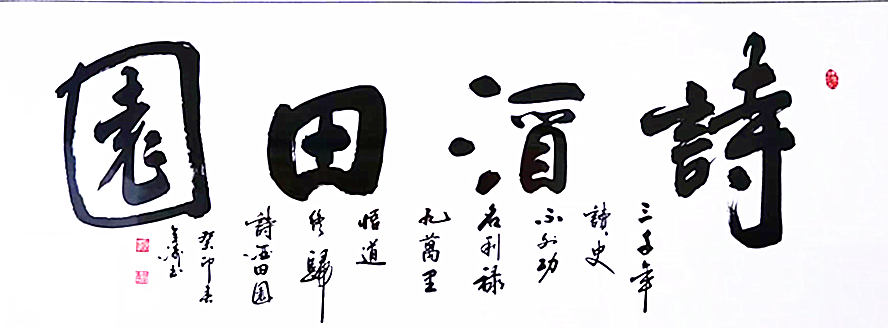 詩酒田園
三千年
詩史
不外功
名利祿
九萬里
悟道
終歸
詩酒田園
癸卯春